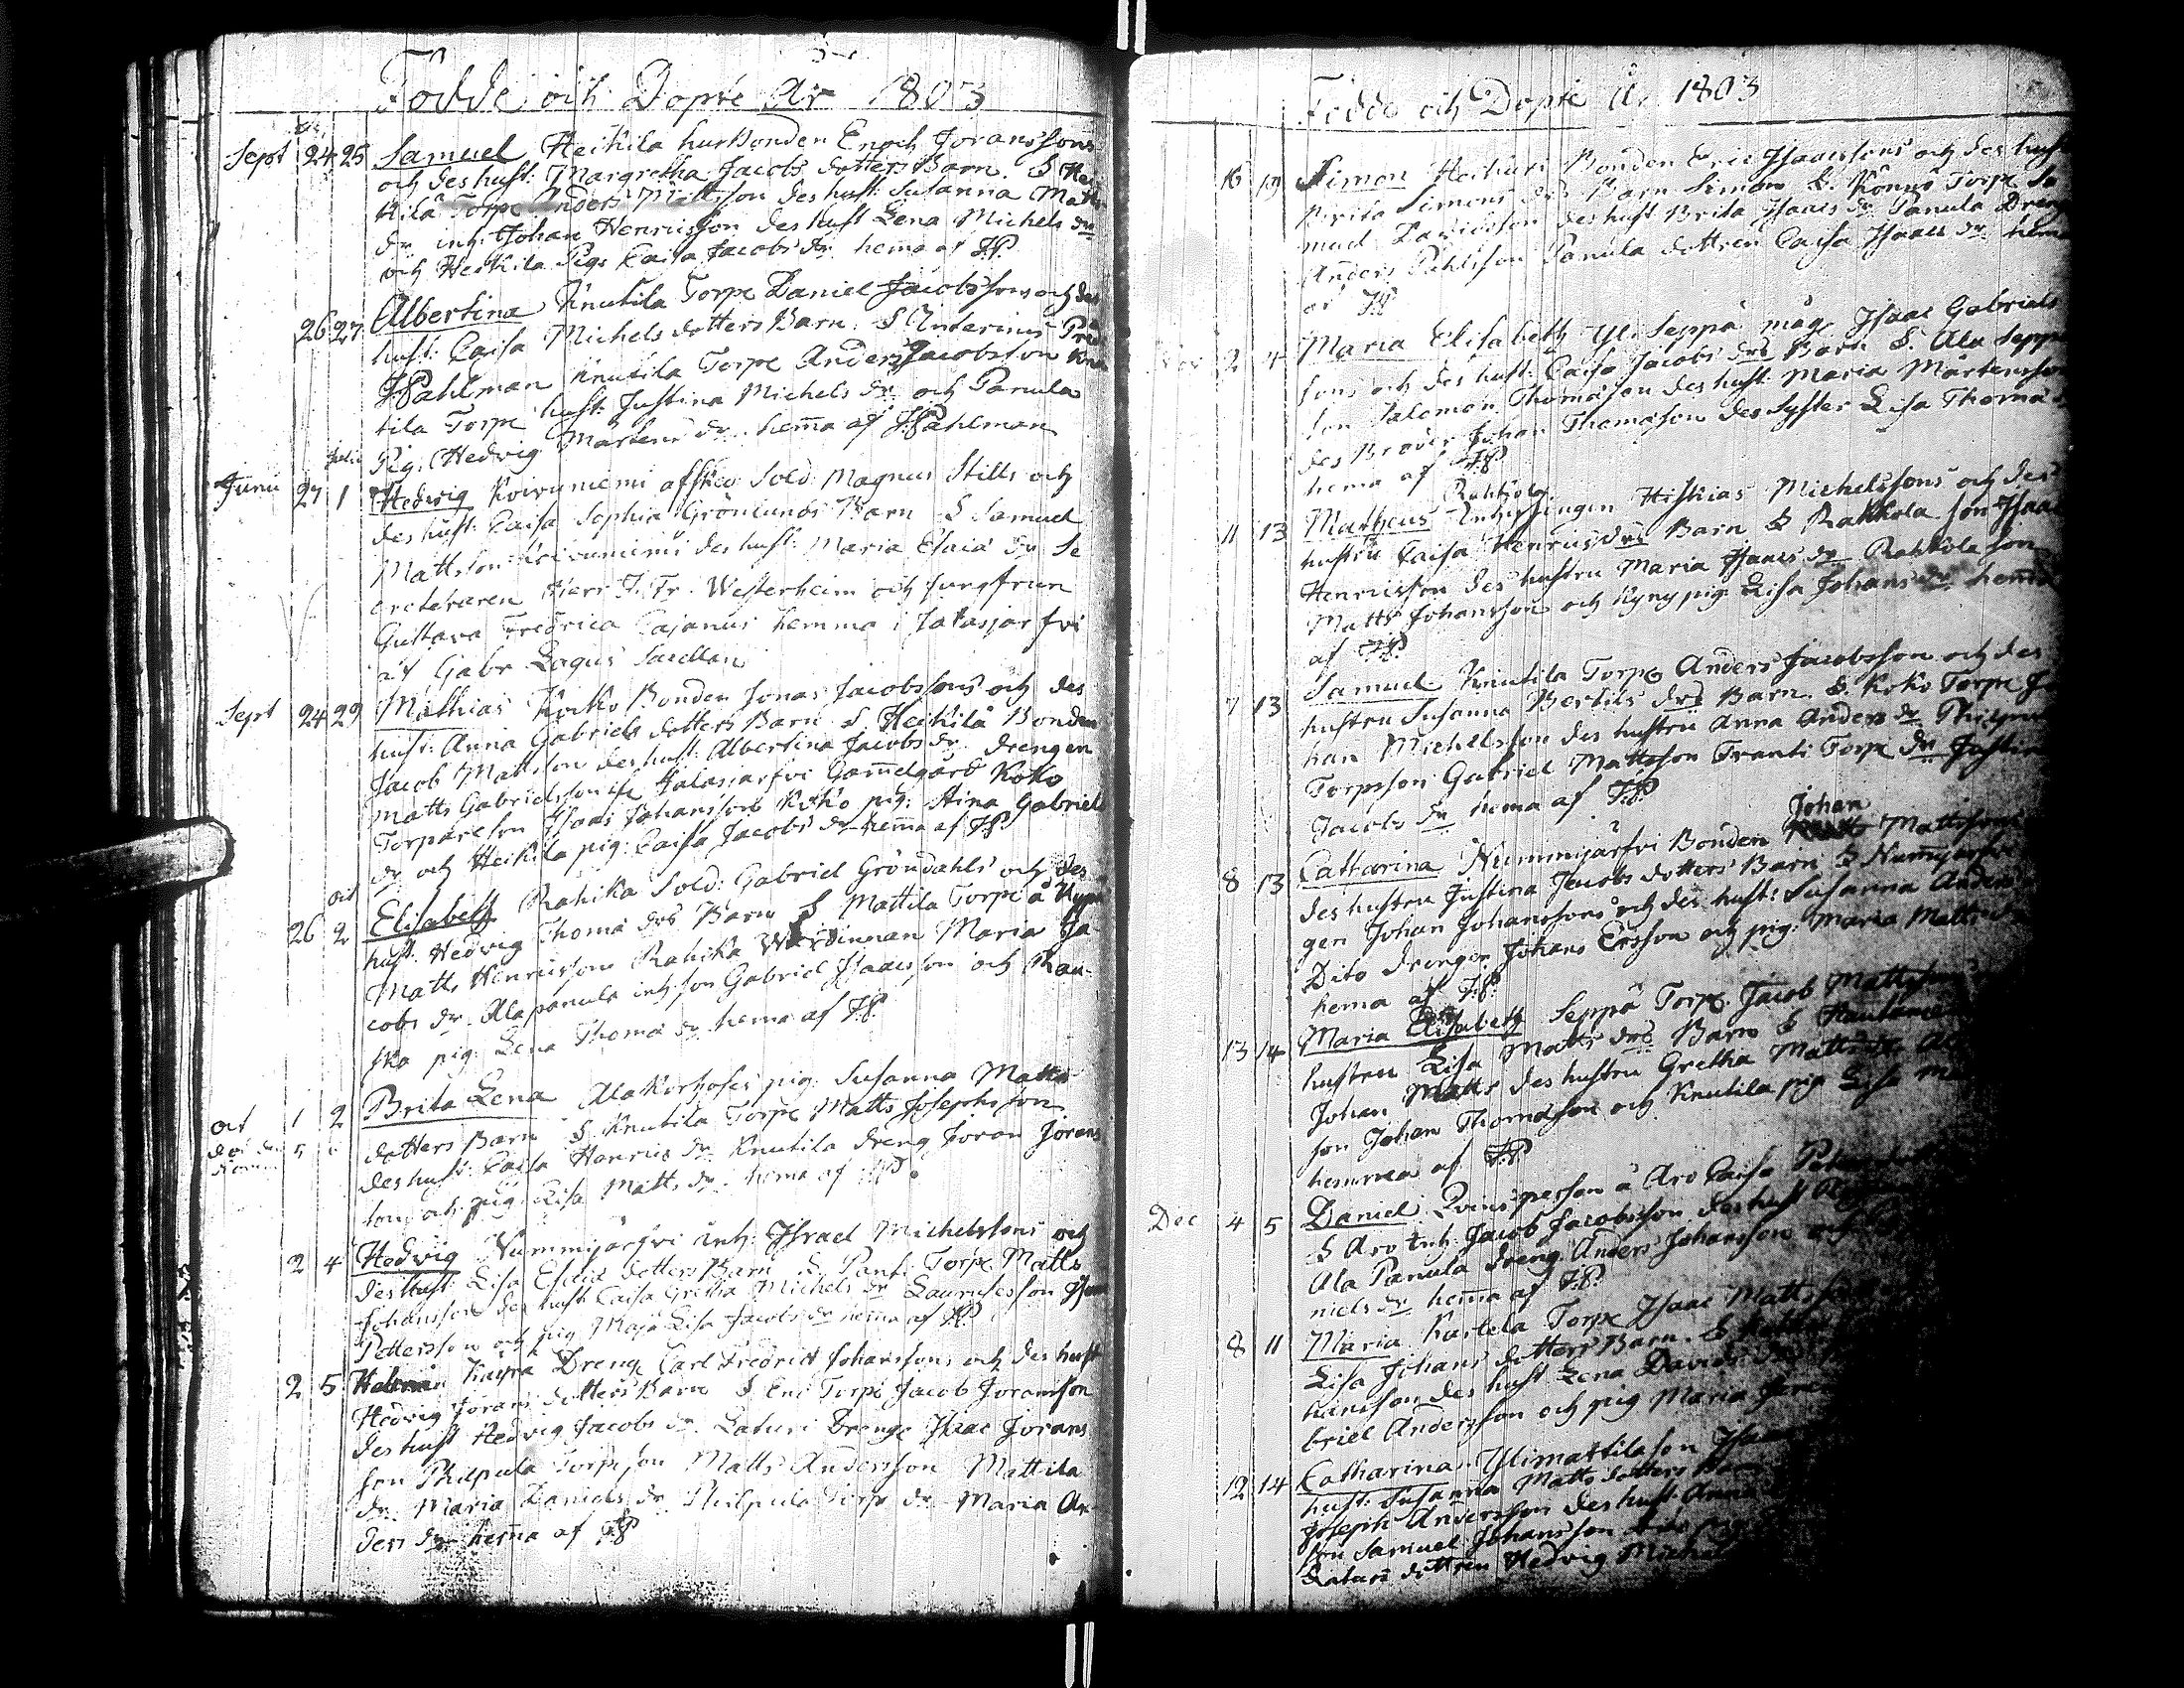 Födde och Döpte År 1803
Sept 24 25 Samuel Heikila husbonden Enoch Joranssons
och des hust: Margretha Jacobs dotters Barn. S Hei
kilä Torpe Anders Mattsson des hust: Susanna Matts
dr inh: Johan Henricsson des hust Lena Michels dr
och Heikila Pig: Caisa Jacobs dr hema af J.P.
26 27 Albertina Knutila Torpe Daniel Jacobssons och des
hust: Caisa Michels dotters Barn. S
J Pahlman Knutila Torpe Anders Jacobsson Knu
tila Torpe hust: Justina Michels dr och Panula
Pig: Hedvig Mårtens dr hema af J Pahlman
Julii
Junii 27 1 Hedvig Koivuniemi afsked Sold: Magnus Stills och
des hust: Caisa Sophia Grönlunds Barn S Samuel
Mattsson Koivuniemi des hust: Maria Esaiæ dr Se
creteraren Herr J. Fr. Westerheim och jungfrun
Gustava Fredrica Cajanus hemma i Jalasjarfvi
af Gabr Lagus Sacellan
Sept 24 29 Mathias Koko Bonden Jonas Jacobssons och des
hust: Anna Gabriels dotters Barn S Heikilä Bonden
Jacob Mattsson des hust: Albertina Jacobs dr drengen
Matts Gabrielsson Jalasjarfvi Gamelgård Koko
Torpare son Isaac Johansson Koko pig: Stina Gabriels
dr och Heikila pig: Caisa Jacobs dr hema af J.P.
Oct
26 2 Elisabeth Rahika Sold: Gabriel Gröndahls och des
hust: Hedvig Thomæ drs Barn S Mattila Torpe å
Matts Henricsson Rahika Werdinnan Maria Ja
cobs dr Alapanula inh: son Gabriel Isaacsson och
ska pig: Lena Thomæ dr hema af J.P.
Oct 1 2 Brita Lena AlaKorhoises pig: Susanna Matts
död den 5 dotters Barn S Knutila Torpe Matts Josephsson
des hust: Caisa Henrics dr Knutila dreng Joran Jorans
son och pig: Lisa Matts dr hema af J.P.
2 4 Hedvig Nummijärfvi inh: Israel Michelssons och
des hust: Lisa Esaiæ dotters Barn S. Panti Torpe Matts
Johansson des hust: Caisa Gretha Michels dr
Pettersson och pig Maja Lisa Jacobs dr hema af J.P.
2 5 Kaupa Drenge Carl Fredrick Johanssons och des hust
Hedvig Jorans dotters Barn S Torpe Jacob Joransson
des hust Hedvig Jacobs dr Laturi Drenge Isac Jorans
son Philpula Torpe son Matts Andersson Mattila
dr Maria Daniels dr Philpula Torpe dr Maria An
ders dr hema af J.P.
Födde och Döpte År 1803
16 19 Simon Bonden Eric Isaacssons och des hust
Brita Simons drs Barn Simon S. Könnö Torpe Sa
muel Davidsson des hust Brita Isaacs dr Panula Dreng
Anders Pahlsson Panula dottren Caisa Isaacs dr hema
af J.P.
Nov 2 4 Maria Elisabeth Yli Seppä måge Isaac Gabriels
sons och des hust: Caisa Jacobs drs Barn S. Ala Seppä
son Salomon Thomasson des hust: Maria Mårtensson
des Broder Johan Thomasson des Syster Lisa Thomæ
hema af J.P.
Rahkola
11 13 Matheus Inhysingen Hiskias Michelssons och des
hustru Caisa Henrics drs Barn S Rahkola son Isaac
Henricsson des hustru Maria Isaacs dr Rahkola son
Matts Johansson och Kyny pig: Lisa Johans dr hema
af J.P.
7 13 Samuel Knutila Torpe Anders Jacobsson och des
hustru Susanna Bertils drs Barn. S. Koko Torpe Jo
han Michelsson des hustru Anna Anders dr Philpula
Torpsson Gabriel Mattsson Tranti Torpe dr Justina
Jacobs dr hema af J.P.
Johan
8 13 Catharina Nummijarfvi Bonden Mattssons
des hustru Justina Jacobs dotters Barn S Numijarfvi
gen Johan Johanssons och des hust: Susanna Anders
Dito drengen Johans Ersson och pig: Maria Matts dr
hema af J.P.
13 14 Maria Elisabeth Seppä Torpe Jacob Mattssons
hustru Lisa Matts drs Barn S Rautamäki
Johan Matts des hustru Gretha Matts dr
son Johan Thomasson och Knutila pig Lisa
hemma af J.P.
Dec 4 5 Daniel Qvinsperson å Aro Caisa
S Aro inh: Jacob Jacobsson des hust
Ala Panula dreng Anders Johansson och
niels dr hema af J.P.
8 11 Maria Kartela Torpe Isaac Mattssons
Lisa Johans dotters Barn. S
hansson des hust Lena Davids dr
briel Andersson och pig Maria
12 14 Catharina Ylimattila son
hust: Susanna Matts dotters Barn
Joseph Andersson des hust: Anna
son Samuel Johansson
Laturi dottren Hedvig Michels